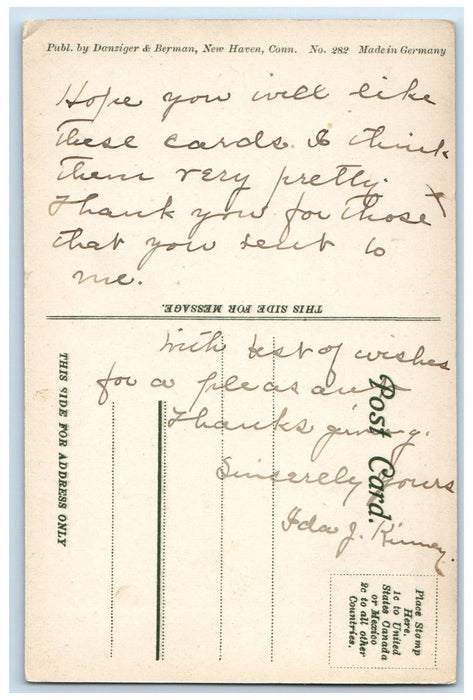 Publ. by Danziger & Berman, New Haven, Conn. No. 282 Made in Germany
Hope you will like
these cards. I think
them very pretty.
Thank you for those
that you sent to
me.
THIS SIDE FOR MESSAGE.
With best of wishes
for a pleasant
Thanksgiving.
Sincerely yours
Ida J. Kinney.
THIS SIDE FOR ADDRESS ONLY
Post Card.
Place Stamp
Here.
1c to United
States Canada
or Mexico
2c to all other
Countries.